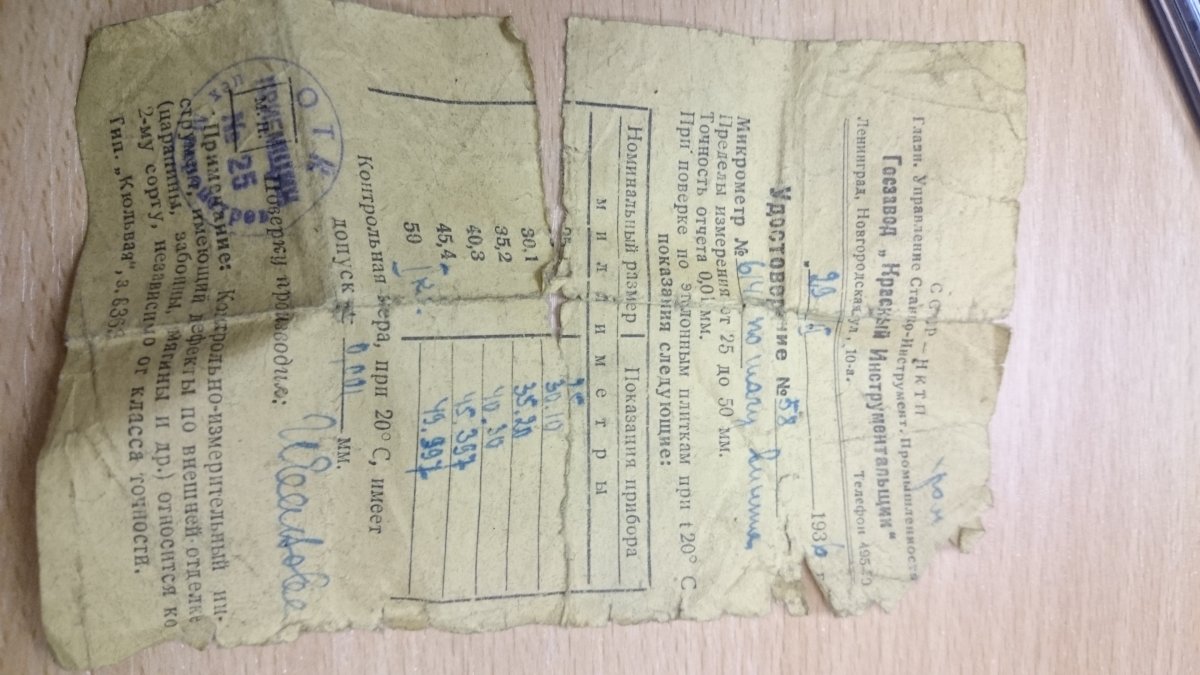 СССР — НКТП
Главн. Управление Станко-Инструмент. Промышленности
Госзавод „Красный Инструментальщик“
Ленинград, Новгородская ул., 10-а. Телефон
„29 5 1936 г.
Удостоверение № 58
Микрометр №
Пределы измерения от 25 до 50 мм.
Точность отчета 0,01 мм.
При поверке по эталонным плиткам при t 20° С
показания следующие:
Номинальный размер Показания прибора
миллиметры
25 25
30,1 30.10
35,2 35.20
40,3 40.30
45,4 45.397
50 49.997
Контрольная мера, при 20° С, имеет
допуск ± 0,001 мм.
Поверку производил:
ОТК
ПРИЕМЩИК
№ 25
М.П.
Примечание: Контрольно-измерительный ин-
струмент, имеющий дефекты по внешней отделке
(царапины, забоины, мягины и др.) относится ко
2-му сорту, независимо от класса точности.
Тип. „Кюльвая“, з.